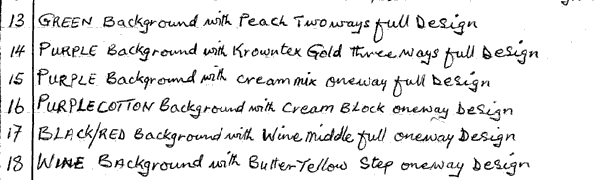 13 GREEN Background with Peach Twoways full Design
14 PURPLE Background with Krowntex Gold three ways full Design
15 PURPLE Background with cream mix oneway full Design
16 PURPLE COTTON Background with Cream Block oneway Design
17 BLACK/RED Background with Wine Middle full oneway Design
18 WINE Background with Butter Yellow Step oneway Design